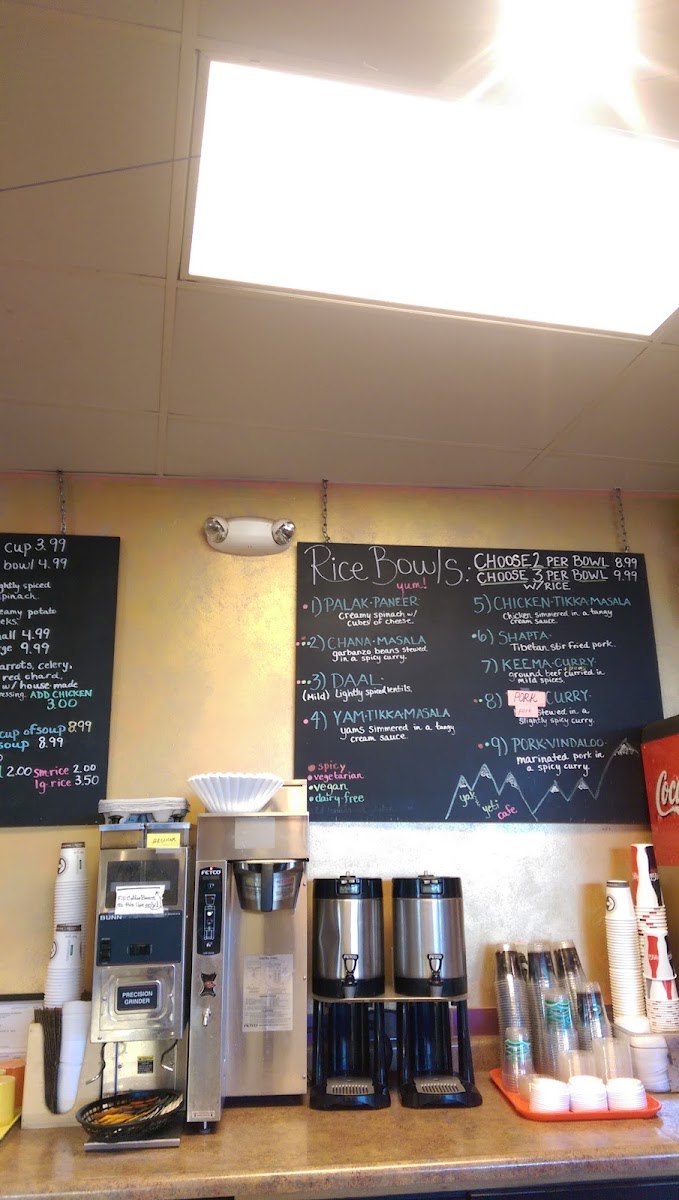 cup 3.99
bowl 4.99
ghtly spiced
pinach.
eamy potato
eeks.
all 4.99
ge 9.99
arrots, celery,
red chard,
w/ house-made
essing. ADD CHICKEN
3.00
cup of soup 8.99
soup 8.99
2.00 sm.rice 2.00
lg.rice 3.50
Rice Bowls:
yum!
CHOOSE 2 PER BOWL 8.99
CHOOSE 3 PER BOWL 9.99
W/ RICE
1) PALAK·PANEER
Creamy spinach w/
cubes of cheese.
2) CHANA·MASALA
garbanzo beans stewed
in a spicy curry.
3) DAAL·
(Mild) Lightly spiced lentils.
4) YAM·TIKKA·MASALA
yams simmered in a tangy
cream sauce.
spicy
vegetarian
vegan
dairy·free
5) CHICKEN·TIKKA·MASALA
chicken simmered in a tangy
cream sauce.
6) SHAPTA·
Tibetan Stir Fried pork.
7) KEEMA·CURRY·
ground beef curried in
mild spices.
8) PORK CURRY·
stewed in a
slightly spicy curry.
9) PORK·VINDALOO·
marinated pork in
a spicy curry.
yak & yeti
cafe
Coca
REGULAR
BUNN
PRECISION
GRINDER
FETCO
FETCO